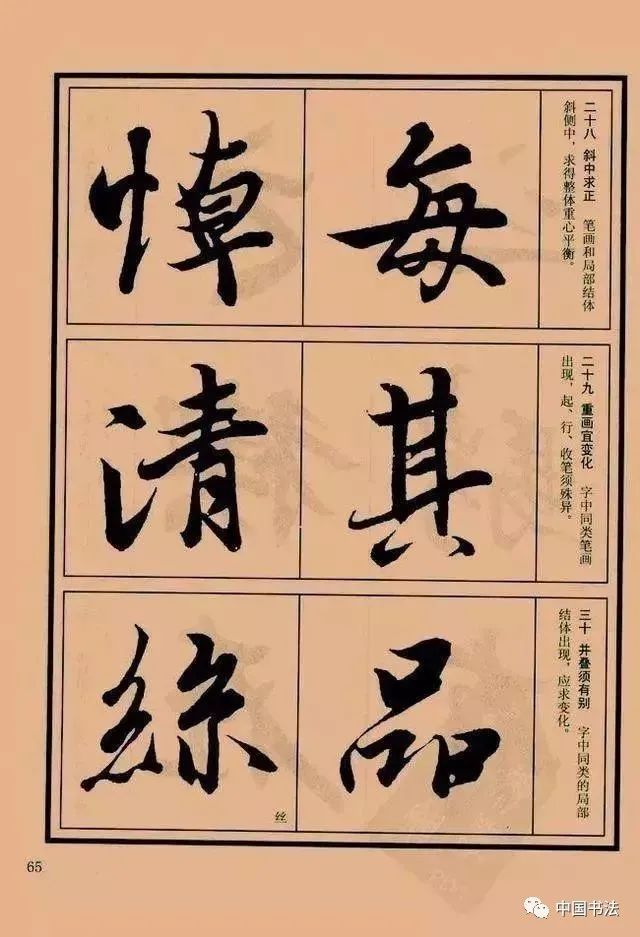 二十八 斜中求正 笔画和局部结体
斜侧中，求得整体重心平衡。
每
悼
二十九 重画宜变化 字中同类笔画
出现，起、行、收笔须殊异。
其
清
三十 并叠须有别 字中同类的局部
结体出现，应求变化。
品
絲
丝
65
中国书法